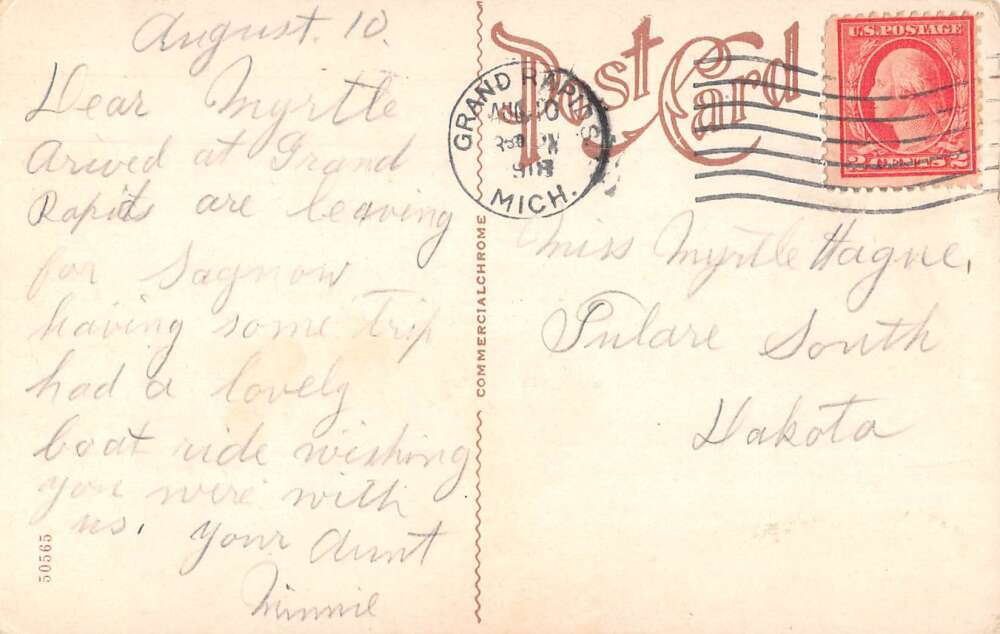 August. 10.
Dear Myrtle
arived at Grand
Rapids are leaving
for Sagnow
having some trip
had a lovely
boat ride wishing
you were with
us. your Aunt
Minnie
50565
COMMERCIALCHROME
Post Card
GRAND RAPIDS
AUG 10
MICH.
U.S. POSTAGE
2 CENTS 2
Miss Myrtle Hague,
Tulare South
Dakota